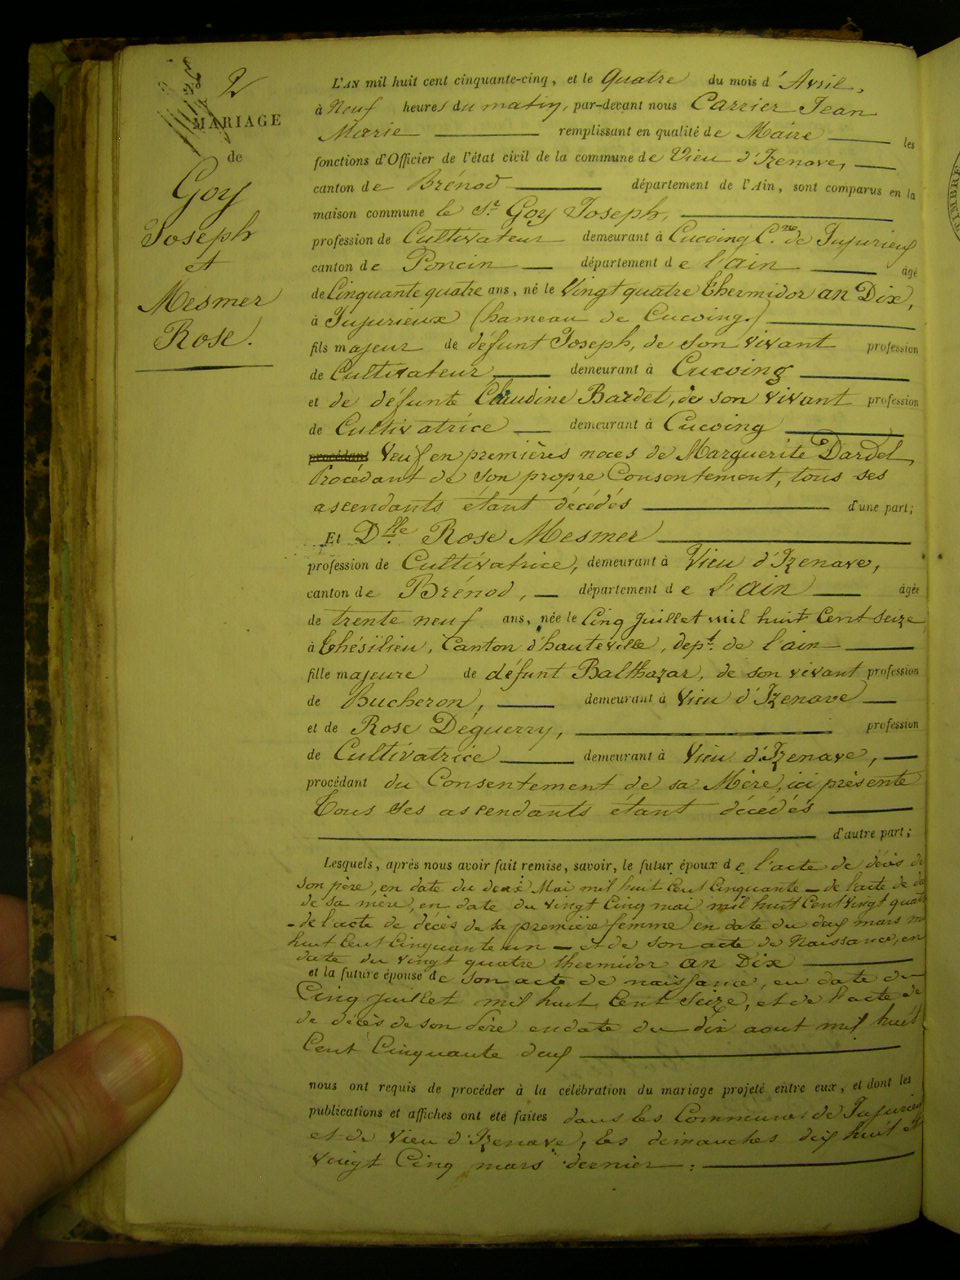 2
MARIAGE
de
Goy
Joseph
et
Mesmer
Rose.
L'AN mil huit cent cinquante-cinq, et le Quatre du mois d'Avril,
à Neuf heures du matin, par-devant nous Carrier Jean
Marie remplissant en qualité de Maire les
fonctions d'Officier de l'état civil de la commune de Vieu d'Izenave,
canton de Brénod département de l'Ain, sont comparus en la
maison commune le Sr Goy Joseph,
profession de Cultivateur demeurant à Cucoing C.ne de Jujurieux
canton de Poncin département de l'ain âgé
de Cinquante quatre ans, né le Vingt quatre thermidor an Dix,
à Jujurieux (hameau de Cucoing.)
fils majeur de défunt Joseph, de son vivant profession
de Cultivateur demeurant à Cucoing
et de défunte Claudine Bardet, de son vivant profession
de Cultivatrice demeurant à Cucoing
procédant Veuf en premières noces de Marguerite Dardel,
Procédant de son propre Consentement, tous ses
ascendants étant décédés d'une part;
Et Dlle Rose Mesmer
profession de Cultivatrice, demeurant à Vieu d'Izenave,
canton de Brénod, département de l'ain âgée
de trente neuf ans, née le Cinq juillet mil huit Cent seize
à thésilieu, Canton d'hauteville, dept. de l'ain
fille majeure de défunt Balthazar, de son vivant profession
de bucheron, demeurant à Vieu d'Izenave
et de Rose Déguerry, profession
de Cultivatrice demeurant à Vieu d'Izenave,
procédant du Consentement de sa Mère, ici présente
tous ses ascendants étant décédés
d'autre part;
Lesquels, après nous avoir fait remise, savoir, le futur époux de l'acte de décès de
son père, en date du deux Mai mil huit Cent Cinquante - de l'acte de
de sa mère, en date du vingt Cinq mai mil huit Cent vingt quatre
- de l'acte de décès de la première femme, en date du mars
huit Cent Cinquante un - et de son acte de Naissance, en
date du vingt quatre thermidor an Dix
et la future épouse de son acte de naissance, en date du
Cinq juillet mil huit Cent seize, et de l'acte de
de décès de son Père en date du dix aout mil huit
Cent Cinquante deux
nous ont requis de procéder à la célébration du mariage projeté entre eux, et dont les
publications et affiches ont été faites dans les Communes de Jujurieux
et de Vieu d'Izenave, les dimanches dix huit et
vingt Cinq mars dernier;
TIMBRE